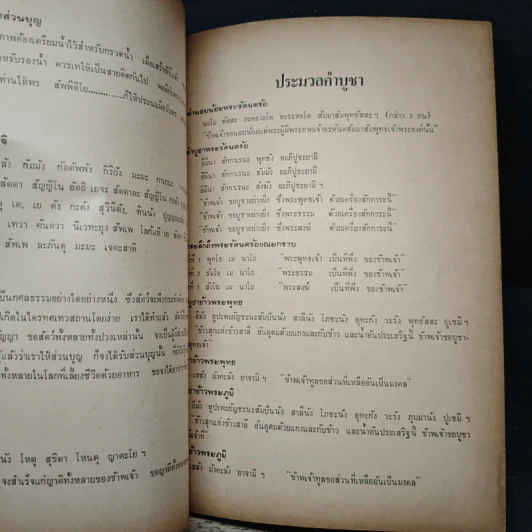 ส่วนบุญ
ภาพต้องเตรียมน้ำไว้สำหรับกรวดน้ำ เมื่อเสร็จพิธี
สำหรับรองน้ำ ควรเทให้เป็นสายติดกันไป
ท่านให้พร สัพพีติโย
สัง กัมมัง กัตตัพพัง กิริยัง มะมะ
สัตตา สัญญิโน อัตถิ เยจะ สัตตาอะ สัญญิโน
ตุ เต, เย ตัง กะตัง สุวิทิตัง, ทินนัง ปุญญะ
เทวา คันตวา นิเวทะยุง สัพเพ โลกัมหิ เย
สัพเพ ละภันตุ มะมะ เจตะสาติ
เป็นกุศลธรรมอย่างใดอย่างหนึ่ง ซึ่งสัตว์จะพึงกระทำ
เกิดในไตรทศเทวสถานโดยง่าย เราได้ทำแล้ว
ญญา ขอสัตว์ทั้งหลายทั้งปวงเหล่านั้น จงเป็น
รู้แล้วว่าเราให้ส่วนบุญ ก็จงได้รับส่วนบุญนั้น
ทั้งหลายในโลกที่เลี้ยงชีวิตด้วยอาหาร ขอจงได้
นัง โหตุ สุขิตา โหนตุ ญาตะโย ฯ
จงสำเร็จแก่ญาติทั้งหลายของข้าพเจ้า ขอญาติทั้ง
ประมวลคำบูชา
คำนอบน้อมพระรัตนตรัย
นะโม ตัสสะ ภะคะวะโต อะระหะโต สัมมาสัมพุทธัสสะ ฯ (กล่าว ๓ หน)
"ข้าพเจ้าขอนอบน้อมแด่พระผู้มีพระภาคเจ้าอรหันตสัมมาสัมพุทธเจ้าพระองค์นั้น"
คำบูชาพระรัตนตรัย
อิมินา สักกาเรนะ พุทธัง อะภิปูชะยามิ
อิมินา สักกาเรนะ ธัมมัง อะภิปูชะยามิ
อิมินา สักกาเรนะ สังฆัง อะภิปูชะยามิ ฯ
"ข้าพเจ้า ขอบูชาอย่างยิ่ง ซึ่งพระพุทธเจ้า ด้วยเครื่องสักการะนี้"
"ข้าพเจ้า ขอบูชาอย่างยิ่ง ซึ่งพระธรรม ด้วยเครื่องสักการะนี้"
"ข้าพเจ้า ขอบูชาอย่างยิ่ง ซึ่งพระสงฆ์ ด้วยเครื่องสักการะนี้"
ระลึกถึงพระรัตนตรัยขณะกราบ
ที่ ๑ พุทโธ เม นาโถ "พระพุทธเจ้า เป็นที่พึ่ง ของข้าพเจ้า"
ที่ ๒ ธัมโม เม นาโถ "พระธรรม เป็นที่พึ่ง ของข้าพเจ้า"
ที่ ๓ สังโฆ เม นาโถ "พระสงฆ์ เป็นที่พึ่ง ของข้าพเจ้า"
บูชาข้าวพระพุทธ
อิมัง สูปะพยัญชะนะสัมปันนัง สาลีนัง โภชะนัง อุทะกัง วะรัง พุทธัสสะ ปูเชมิ ฯ
"ข้าวสุกแห่งข้าวสาลี อันอุดมด้วยแกงและกับข้าว และน้ำอันประเสริฐนี้ ข้าพเจ้า ขอบูชา
พุทธเจ้า"
ลาข้าวพระพุทธ
เสสัง มังคะลัง ยาจามิ ฯ "ข้าพเจ้าทูลขอส่วนที่เหลืออันเป็นมงคล"
บูชาข้าวพระภูมิ
อิมัง สูปะพยัญชะนะสัมปันนัง สาลีนัง โภชะนัง อุทะกัง วะรัง ภุมมานัง ปูเชมิ ฯ
"ข้าวสุกแห่งข้าวสาลี อันอุดมด้วยแกงและกับข้าว และน้ำอันประเสริฐนี้ ข้าพเจ้า ขอบูชา
ข้าวพระภูมิ
เสสัง มังคะลัง ยาจามิ ฯ "ข้าพเจ้าทูลขอส่วนที่เหลืออันเป็นมงคล"